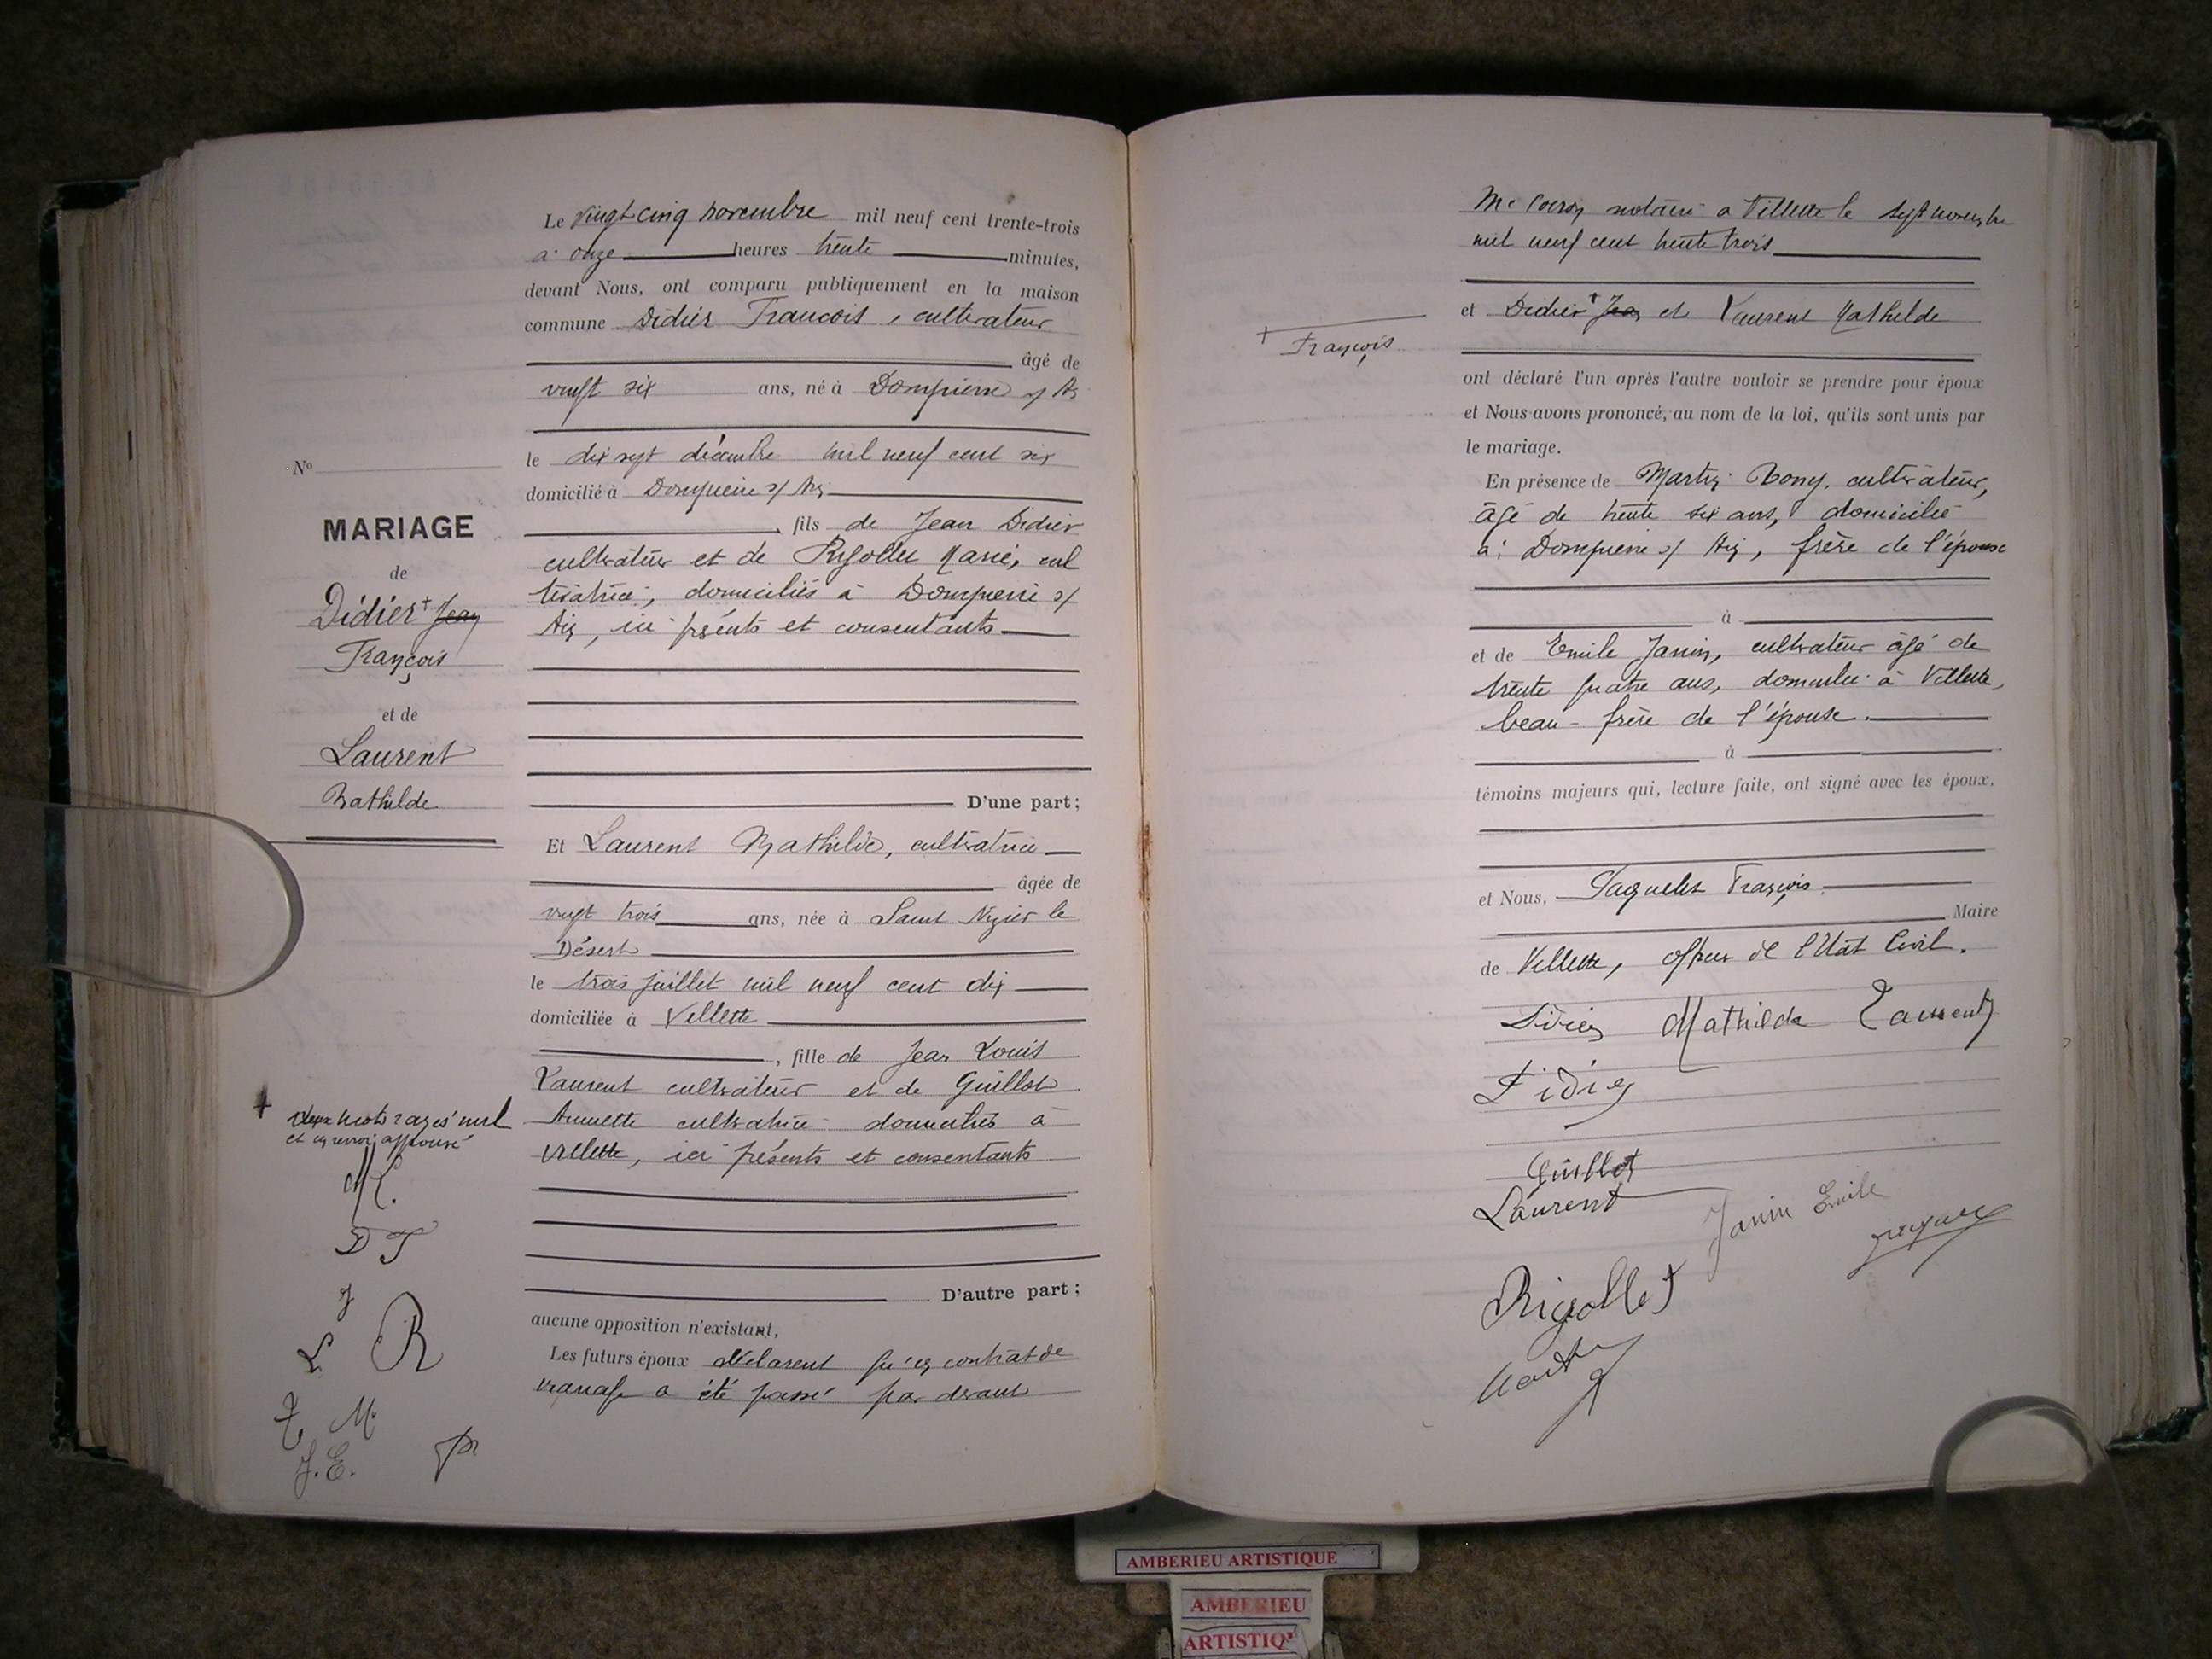 Le vingt cinq novembre mil neuf cent trente-trois
à onze heures trente minutes,
devant Nous, ont comparu publiquement en la maison
commune Didier Francois, cultivateur
âgé de
vingt six ans, né à Dompierre s/ Ain
le dix sept décembre mil neuf cent six
domicilié à Dompierre s/ Ain
, fils de Jean Didier
cultivateur et de Rigollet Marie, cul
tivatrice, domiciliés à Dompierre s/
Ain, ici présents et consentants
D'une part;
Et Laurent Mathilde, cultivatrice
âgée de
vingt trois ans, née à Saint Nizier le
Désert
le trois juillet mil neuf cent dix
domiciliée à Villette
, fille de Jean Louis
Laurent cultivateur et de Guillot
Annette cultivatrice domiciliés à
Villette, ici présents et consentants
D'autre part;
aucune opposition n'existant,
Les futurs époux déclarent qu'un contrat de
mariage a été passé par devant
No
MARIAGE
de
Didier + Jean
François
et de
Laurent
Mathilde
+ deux mots rayés nul
et un renvoi approuvé
M L.
D F
J
L R
M
J. E.
Me notaire a Villette le sept novembre
mil neuf cent trente trois
et Didier + Jean et Laurent Mathilde
+ François
ont déclaré l'un après l'autre vouloir se prendre pour époux
et Nous avons prononcé, au nom de la loi, qu'ils sont unis par
le mariage.
En présence de Martin Rony, cultivateur,
âgé de trente six ans, domicilié
à Dompierre s/ Ain, frère de l'épouse
à
et de Emile Janin, cultivateur âgé de
trente quatre ans, domicilié à Villette,
beau-frère de l'épouse.
à
témoins majeurs qui, lecture faite, ont signé avec les époux,
et Nous, François
Maire
de Villette, officier de l'Etat Civil.
Didier Mathilde Laurent
Didier
Guillot
Laurent
Janin Emile
Rigollet
AMBERIEU ARTISTIQUE
AMBERIEU
ARTISTIQ